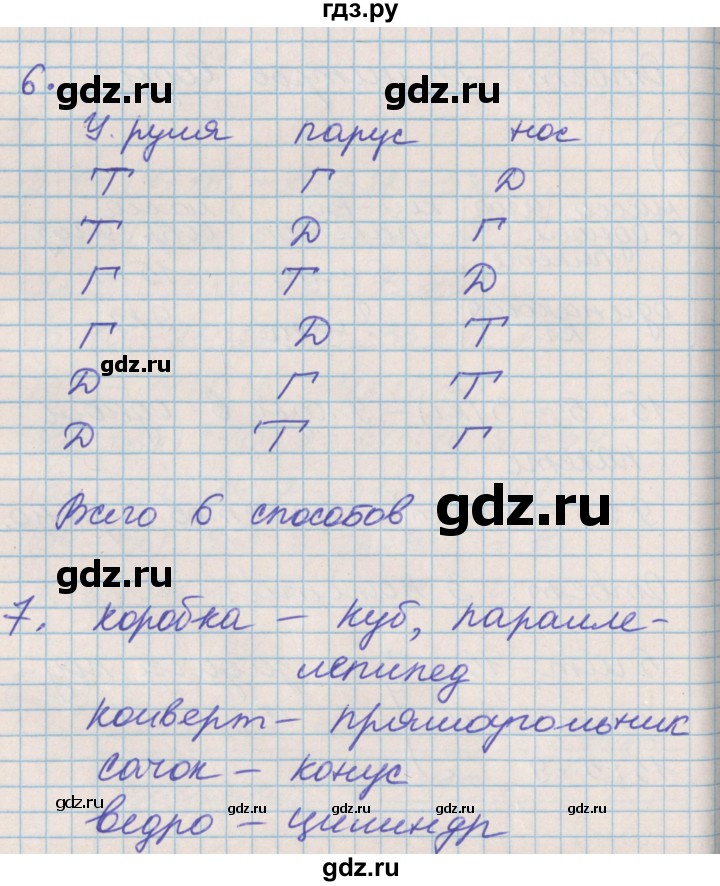 гдз.ру
6.
gdz.ru gdz.ru
У руля парус нос
Т Г Д
Т Д Г
Г Т Д
Г Д Т
gdz.ru
Д Г Т
Д Т Г
Всего 6 способов gdz.ru
gdz.ru
7. коробка – куб, паралле-
лепипед
конверт – прямоугольник
сачок – конус
gdz.ru gdz.ru gdz.ru gdz.ru
ведро – цилиндр
gdz.ru